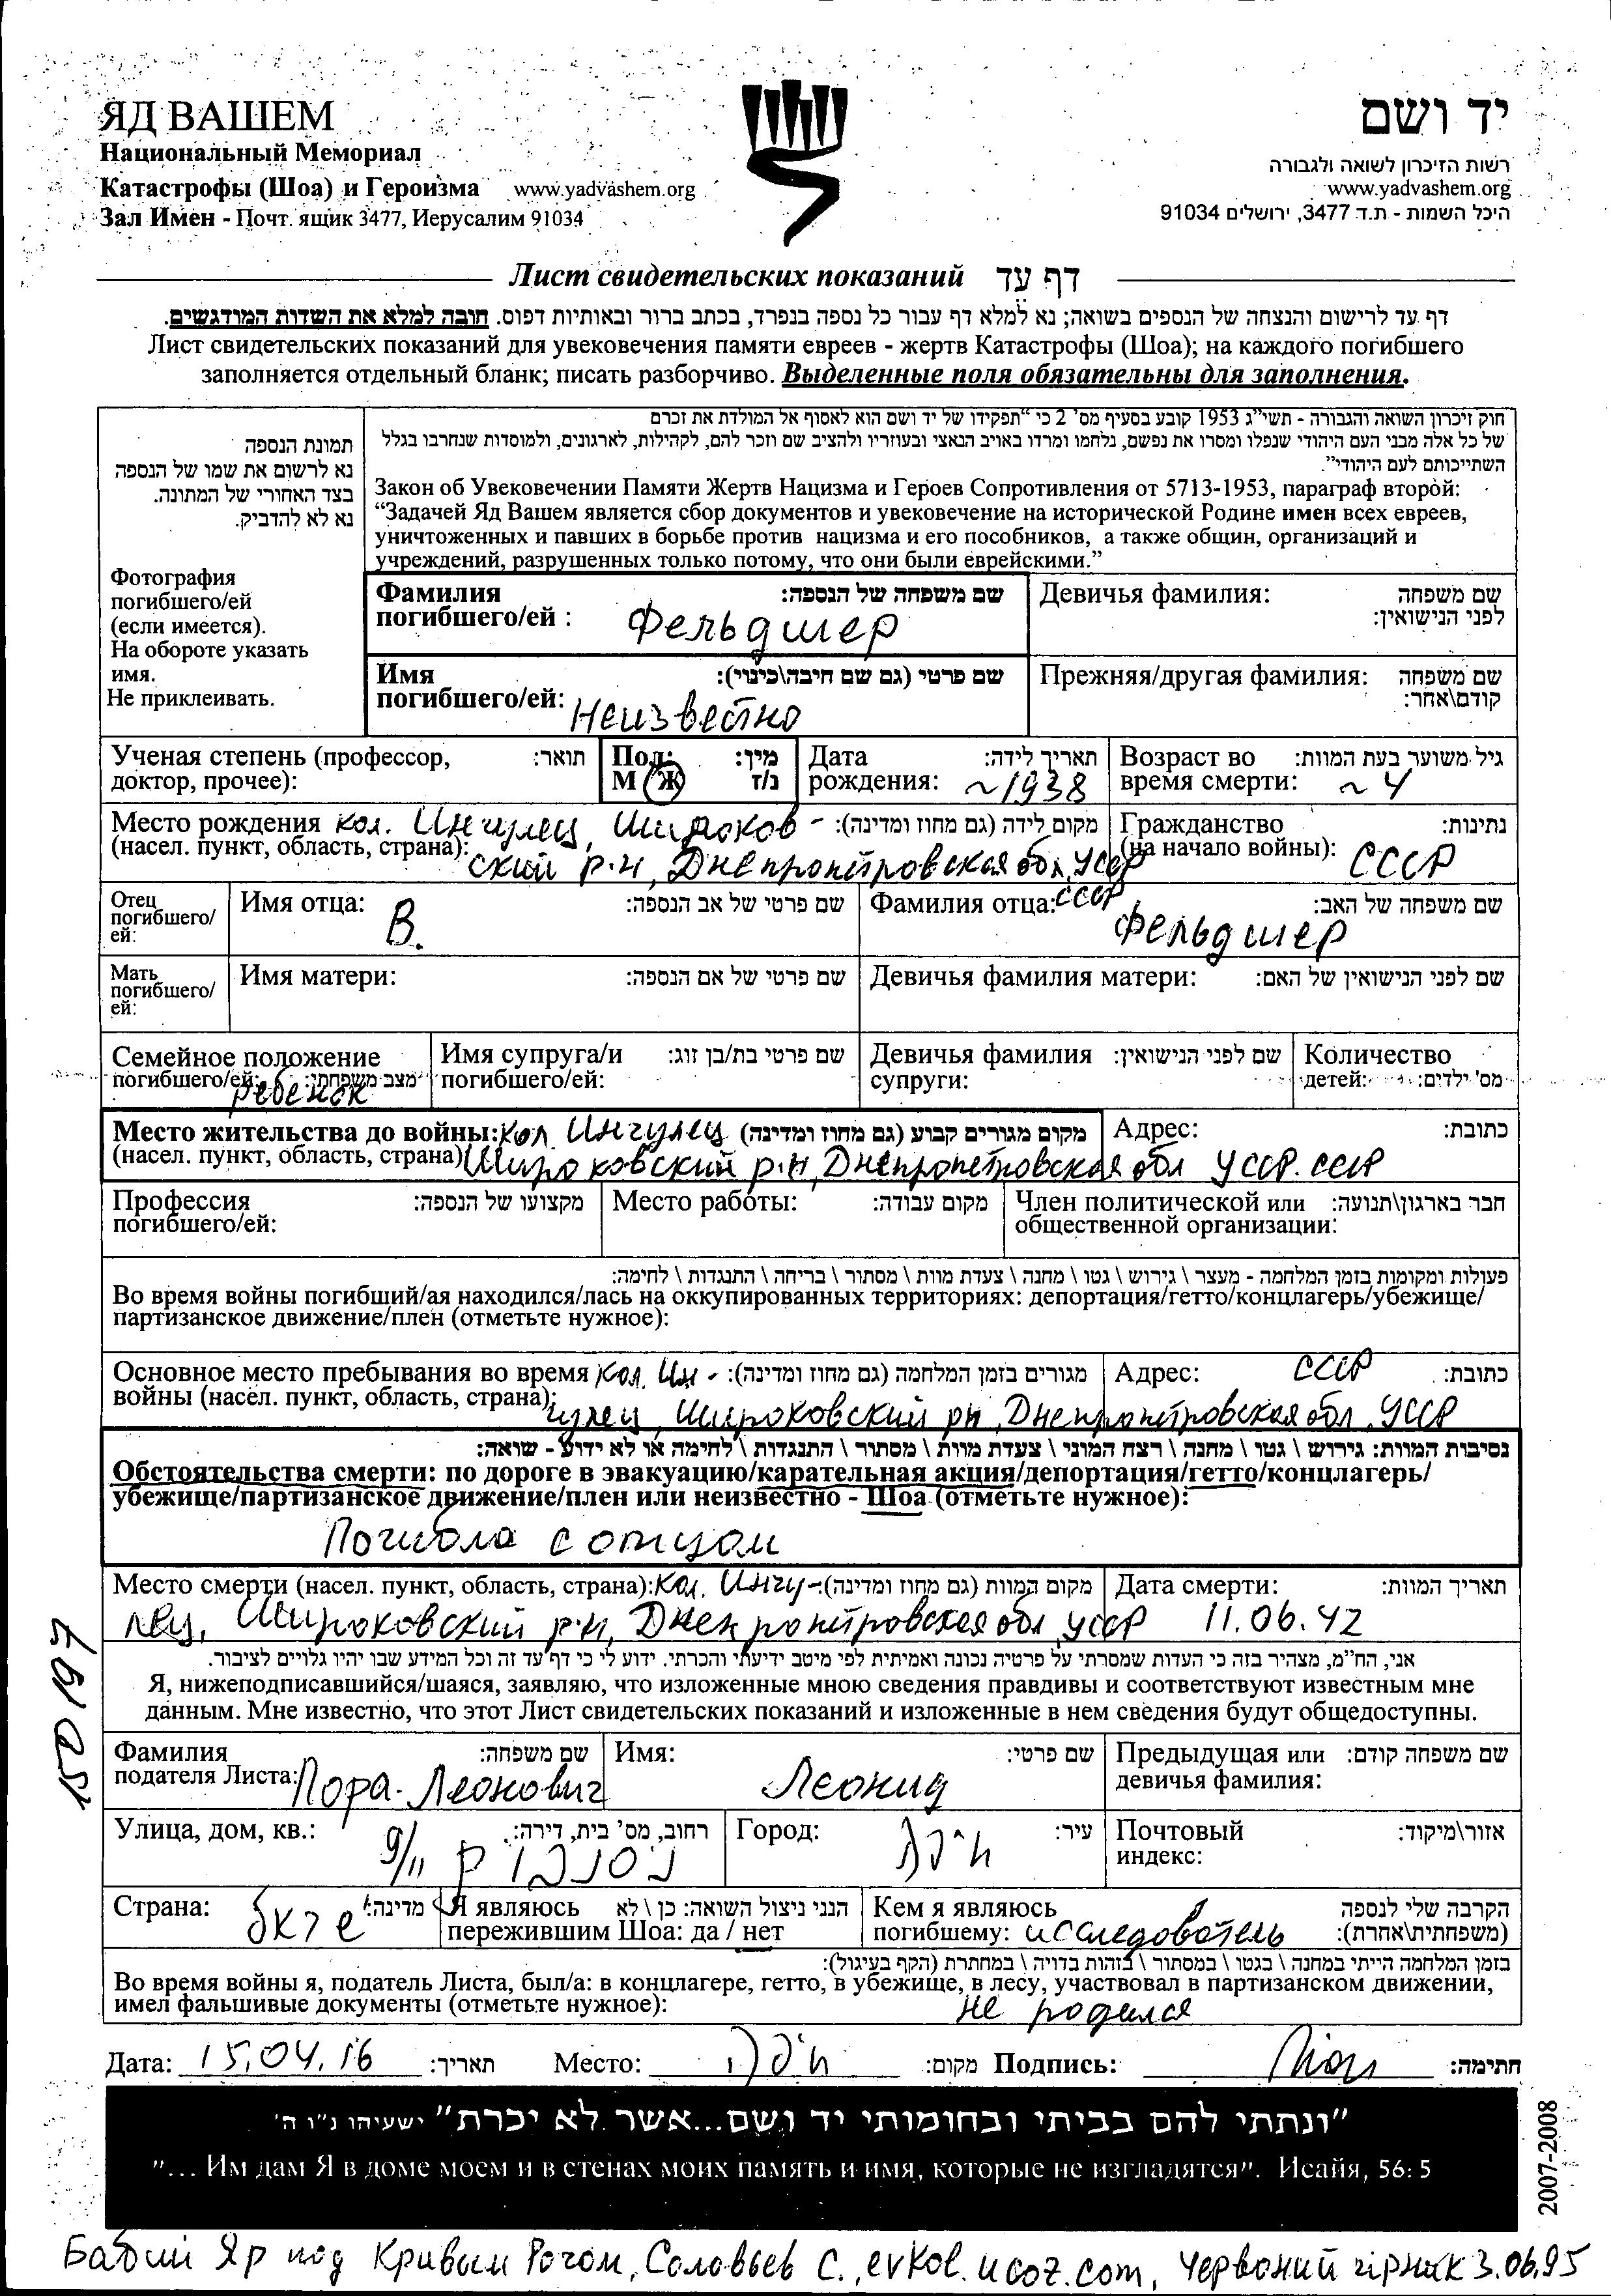 ЯД ВАШЕМ
Национальный Мемориал
Катастрофы (Шоа) и Героизма www.yadvashem.org
Зал Имен - Почт. ящик 3477, Иерусалим 91034
יד ושם
רשות הזיכרון לשואה ולגבורה
www.yadvashem.org
היכל השמות - ת.ד 3477, ירושלים 91034
Лист свидетельских показаний דף עד
דף עד לרישום והנצחה של הנספים בשואה; נא למלא דף עבור כל נספה בנפרד, בכתב ברור ובאותיות דפוס. חובה למלא את השדות המודגשים.
Лист свидетельских показаний для увековечения памяти евреев - жертв Катастрофы (Шоа); на каждого погибшего
заполняется отдельный бланк; писать разборчиво. Выделенные поля обязательны для заполнения.
תמונת הנספה
נא לרשום את שמו של הנספה
בצד האחורי של המתונה.
נא לא להדביק.
Фотография
погибшего/ей
(если имеется).
На обороте указать
имя.
Не приклеивать.
חוק זיכרון השואה והגבורה - תשי"ג 1953 קובע בסעיף מס' 2 כי "תפקידו של יד ושם הוא לאסוף אל המולדת את זכרם
של כל אלה מבני העם היהודי שנפלו ומסרו את נפשם, נלחמו ומרדו באויב הנאצי ובעוזריו ולהציב שם וזכר להם, לקהילות, לארגונים, ולמוסדות שנחרבו בגלל
השתייכותם לעם היהודי".
Закон об Увековечении Памяти Жертв Нацизма и Героев Сопротивления от 5713-1953, параграф второй:
"Задачей Яд Вашем является сбор документов и увековечение на исторической Родине имен всех евреев,
уничтоженных и павших в борьбе против нацизма и его пособников, а также общин, организаций и
учреждений, разрушенных только потому, что они были еврейскими."
Фамилия שם משפחה של הנספה:
погибшего/ей : Фельдшер
Девичья фамилия: שם משפחה
לפני הנישואין:
Имя שם פרטי (גם שם חיבה\כינוי):
погибшего/ей: Неизвестно
Прежняя/другая фамилия: שם משפחה
קודם\אחר:
Ученая степень (профессор, תואר:
доктор, прочее):
Пол: מין:
М Ж ז/נ
Дата תאריך לידה:
рождения: ~1938
Возраст во גיל משוער בעת המוות:
время смерти: ~ 4
Место рождения кол. Ингулец, Широков- מקום לידה (גם מחוז ומדינה):
(насел. пункт, область, страна): ский р-н, Днепропетровская обл, УССР
СССР
Гражданство נתינות:
(на начало войны): СССР
Отец
погибшего/
ей:
Имя отца: В. שם פרטי של אב הנספה:
Фамилия отца: Фельдшер שם משפחה של האב:
Мать
погибшего/
ей:
Имя матери: שם פרטי של אם הנספה:
Девичья фамилия матери: שם לפני הנישואין של האם:
Семейное положение
погибшего/ей: מצב משפחתי:
ребенок
Имя супруга/и שם פרטי בת/בן זוג:
погибшего/ей:
Девичья фамилия שם לפני הנישואין:
супруги:
Количество
детей: מס' ילדים:
Место жительства до войны: кол Ингулец מקום מגורים קבוע (גם מחוז ומדינה)
(насел. пункт, область, страна) Широковский р-н, Днепропетровская обл УССР. СССР
Адрес: כתובת:
Профессия מקצועו של הנספה:
погибшего/ей:
Место работы: מקום עבודה:
Член политической или חבר בארגון\תנועה:
общественной организации:
פעולות ומקומות בזמן המלחמה - מעצר \ גירוש \ גטו \ מחנה \ צעדת מוות \ מסתור \ בריחה \ התנגדות \ לחימה:
Во время войны погибший/ая находился/лась на оккупированных территориях: депортация/гетто/концлагерь/убежище/
партизанское движение/плен (отметьте нужное):
Основное место пребывания во время кол. Ин- מגורים בזמן המלחמה (גם מחוז ומדינה):
войны (насел. пункт, область, страна): гулец, Широковский рн, Днепропетровская обл, УССР
Адрес: СССР כתובת:
נסיבות המוות: גירוש \ גטו \ מחנה \ רצח המוני \ צעדת מוות \ מסתור \ התנגדות \ לחימה או לא ידוע - שואה:
Обстоятельства смерти: по дороге в эвакуацию/карательная акция/депортация/гетто/концлагерь/
убежище/партизанское движение/плен или неизвестно - Шоа (отметьте нужное):
Погибла с отцом
Место смерти (насел. пункт, область, страна): кол. Ингу- מקום המוות (גם מחוז ומדינה):
лец, Широковский р-н, Днепропетровская обл УССР
Дата смерти: תאריך המוות:
11.06.42
אני, הח"מ, מצהיר בזה כי העדות שמסרתי על פרטיה נכונה ואמיתית לפי מיטב ידיעתי והכרתי. ידוע לי כי דף עד זה וכל המידע שבו יהיו גלויים לציבור.
Я, нижеподписавшийся/шаяся, заявляю, что изложенные мною сведения правдивы и соответствуют известным мне
данным. Мне известно, что этот Лист свидетельских показаний и изложенные в нем сведения будут общедоступны.
150197
Фамилия שם משפחה:
подателя Листа: Пора-Леонович
Имя: Леонид שם פרטי:
Предыдущая или שם משפחה קודם:
девичья фамилия:
Улица, дом, кв.: רחוב, מס' בית, דירה:
9/11
Город: עיר:
חיפה
Почтовый אזור\מיקוד:
индекс:
Страна: מדינה:
Я являюсь הנני ניצול השואה: כן \ לא
пережившим Шоа: да / нет
Кем я являюсь הקרבה שלי לנספה
погибшему: исследователь (משפחתית\אחרת):
בזמן המלחמה הייתי במחנה \ בגטו \ במסתור \ בזהות בדויה \ במחתרת (הקף בעיגול):
Во время войны я, податель Листа, был/а: в концлагере, гетто, в убежище, в лесу, участвовал в партизанском движении,
имел фальшивые документы (отметьте нужное): не родился
Дата: 15.04.16 תאריך: Место: חיפה מקום: Подпись: חתימה:
"ונתתי להם בביתי ובחומותי יד ושם...אשר לא יכרת" ישעיהו נ"ו ה'
"... Им дам Я в доме моем и в стенах моих память и имя, которые не изгладятся". Исайя, 56: 5
2007-2008
Бабий Яр под Кривым Рогом, Соловьев С., evkol.ucoz.com, Червоний гірник 3.06.95